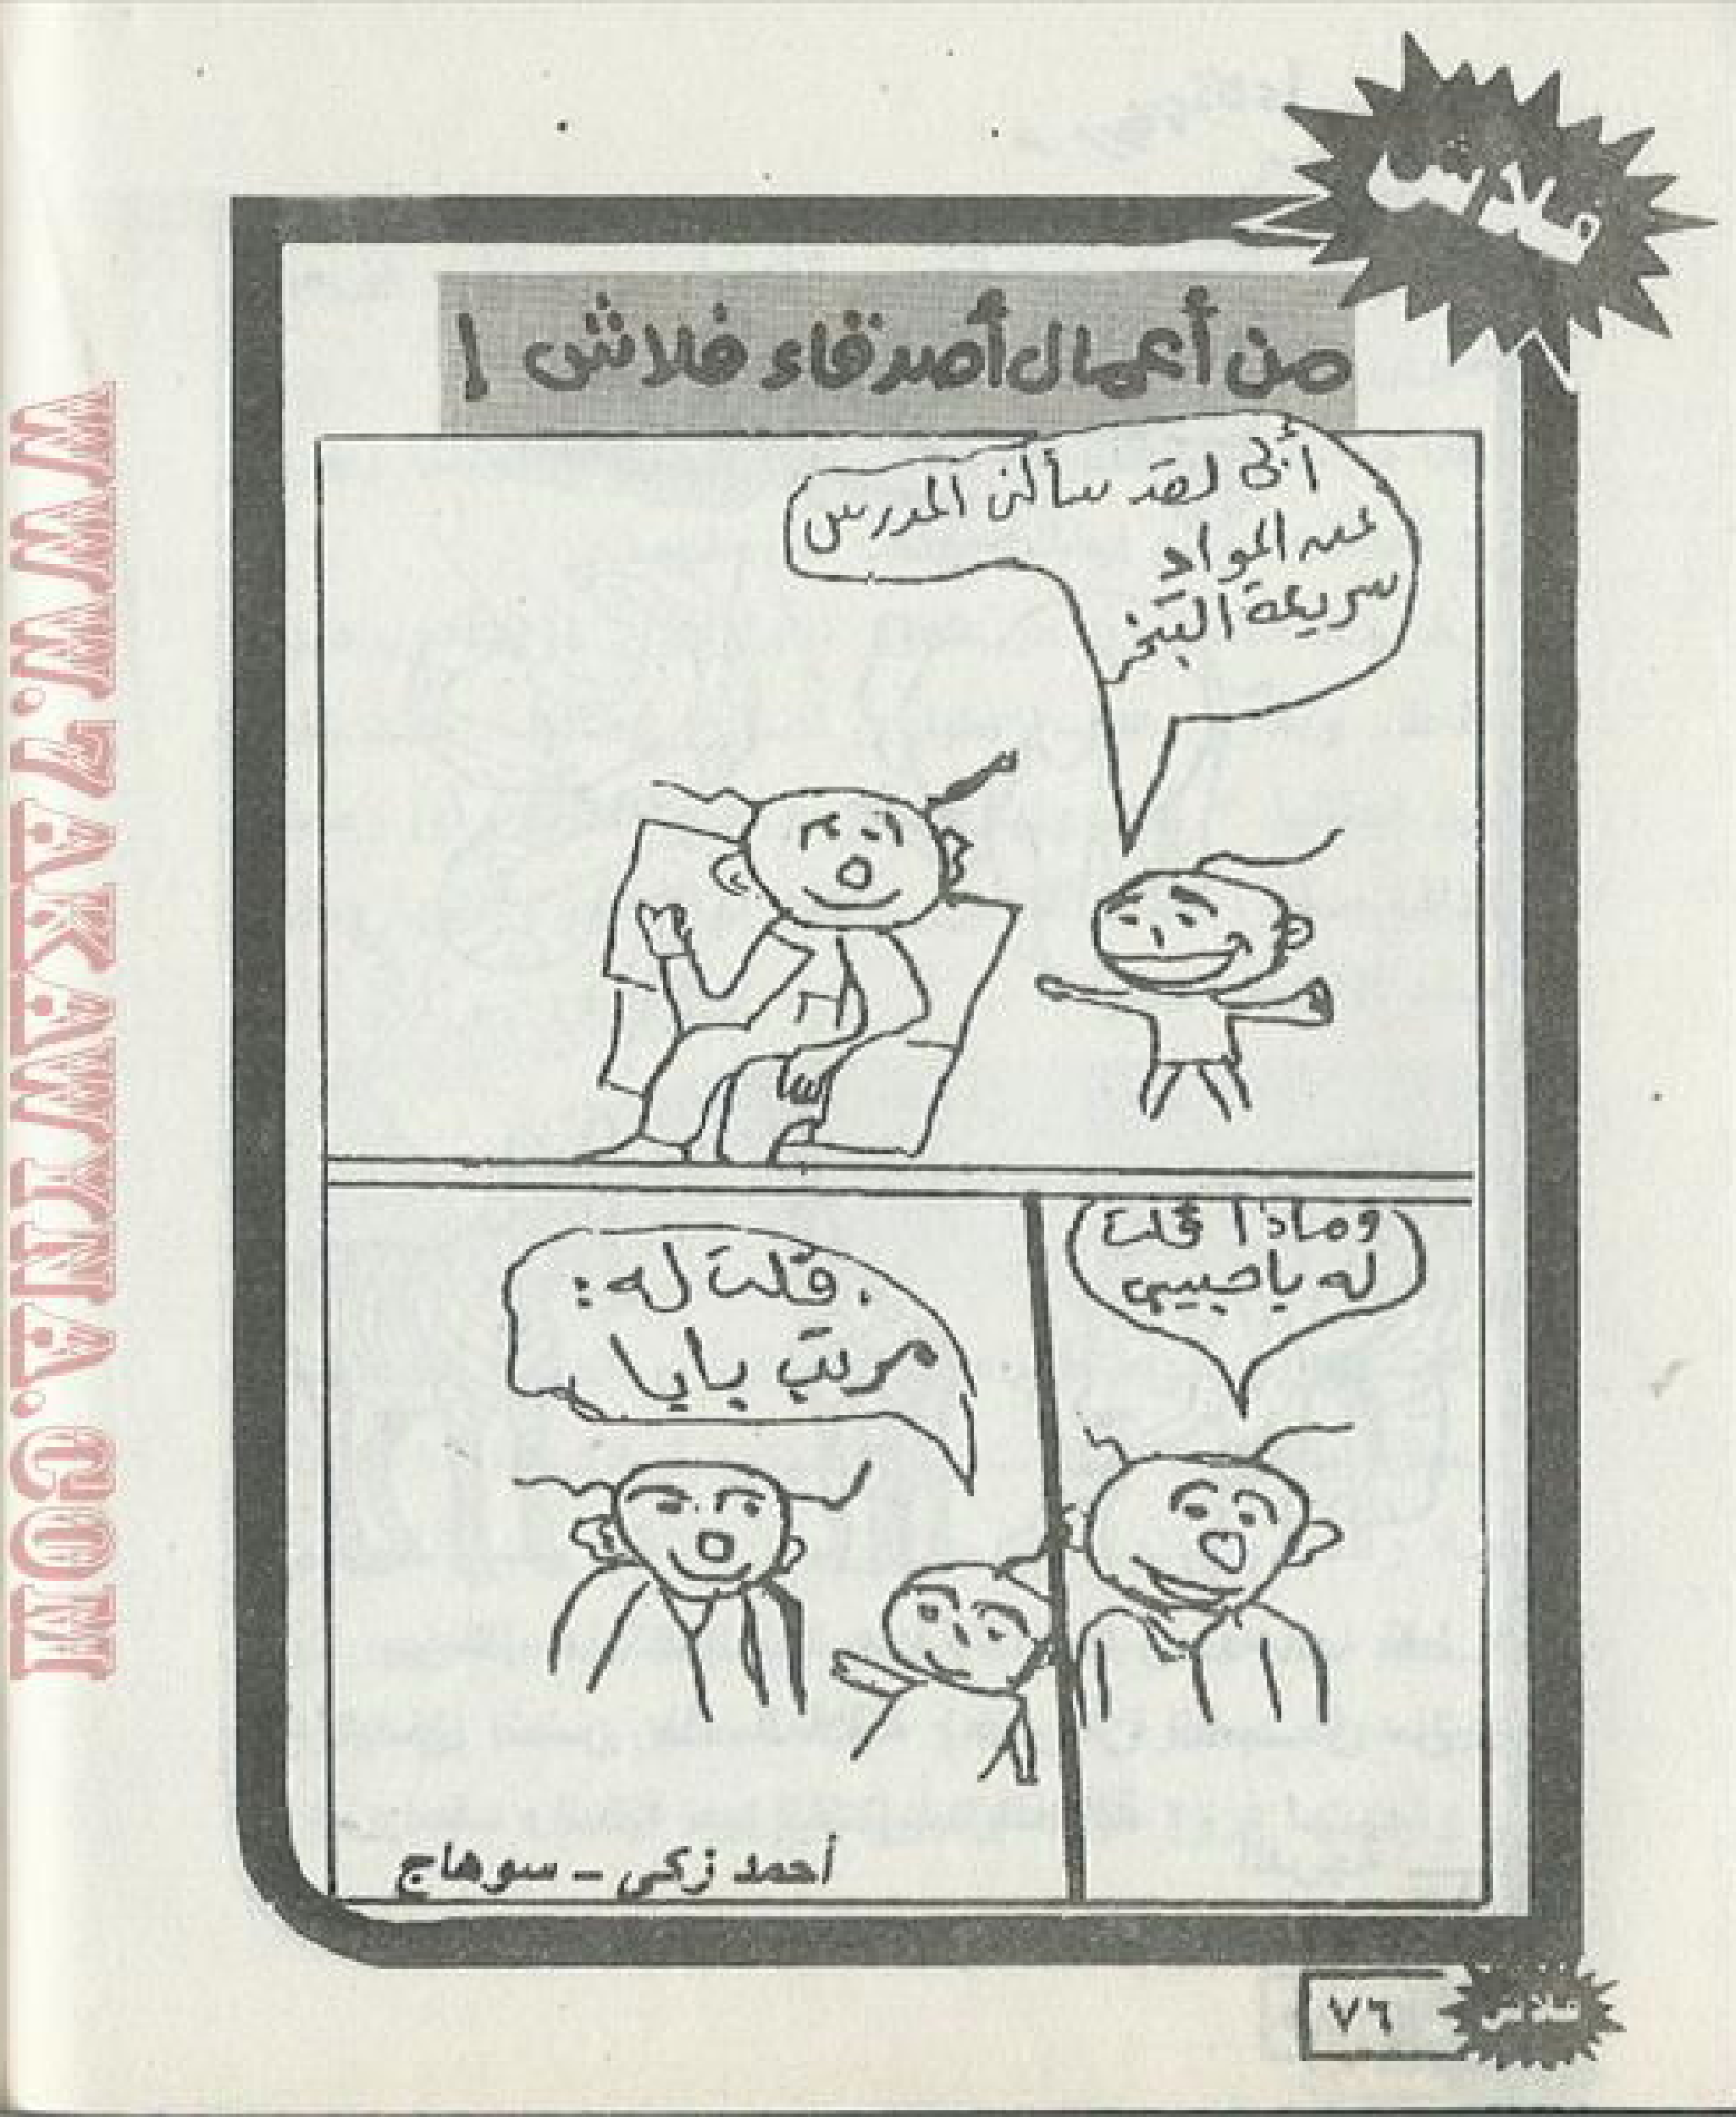 فلاش
من أعمال أصدقاء فلاش !
أبى لقد سألنى المدرس
عن المواد
سريعة التبخر
وماذا قلت
له يا حبيبى
قلت له :
مرتب بابا
أحمد زكى - سوهاج
٧٦
فلاش
WWW.7AKAWYNA.COM